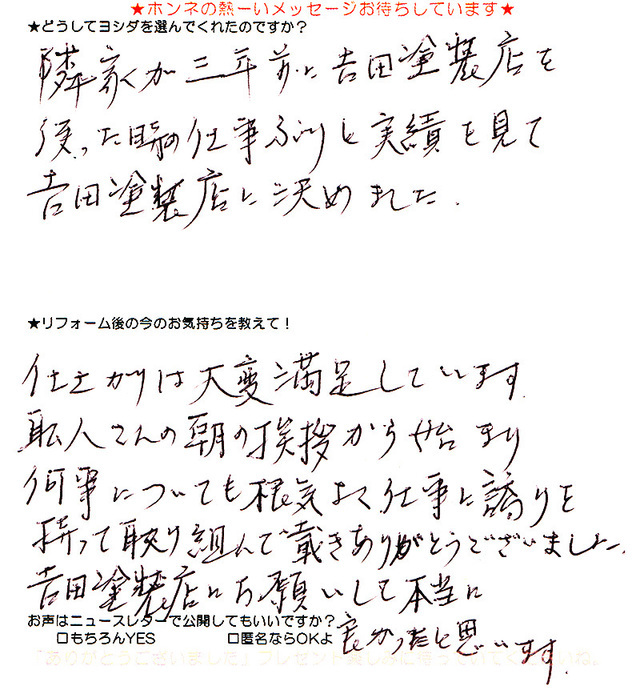 ★ホンネの熱ーいメッセージお待ちしています★
★どうしてヨシダを選んでくれたのですか？
隣家が三年前に吉田塗装店を
使った時の仕事ぶりと実績を見て
吉田塗装店に決めました.
★リフォーム後の今のお気持ちを教えて！
仕上がりは大変満足しています.
職人さんの朝の挨拶から始まり
何事についても根気よく仕事に誇りを
持って取り組んで戴きありがとうございました.
吉田塗装店にお願いして本当に
良かったと思います.
お声はニュースレターで公開してもいいですか？
□もちろんYES □匿名ならOKよ
「ありがとうございました」プレゼント楽しみに待っていてくださいね。